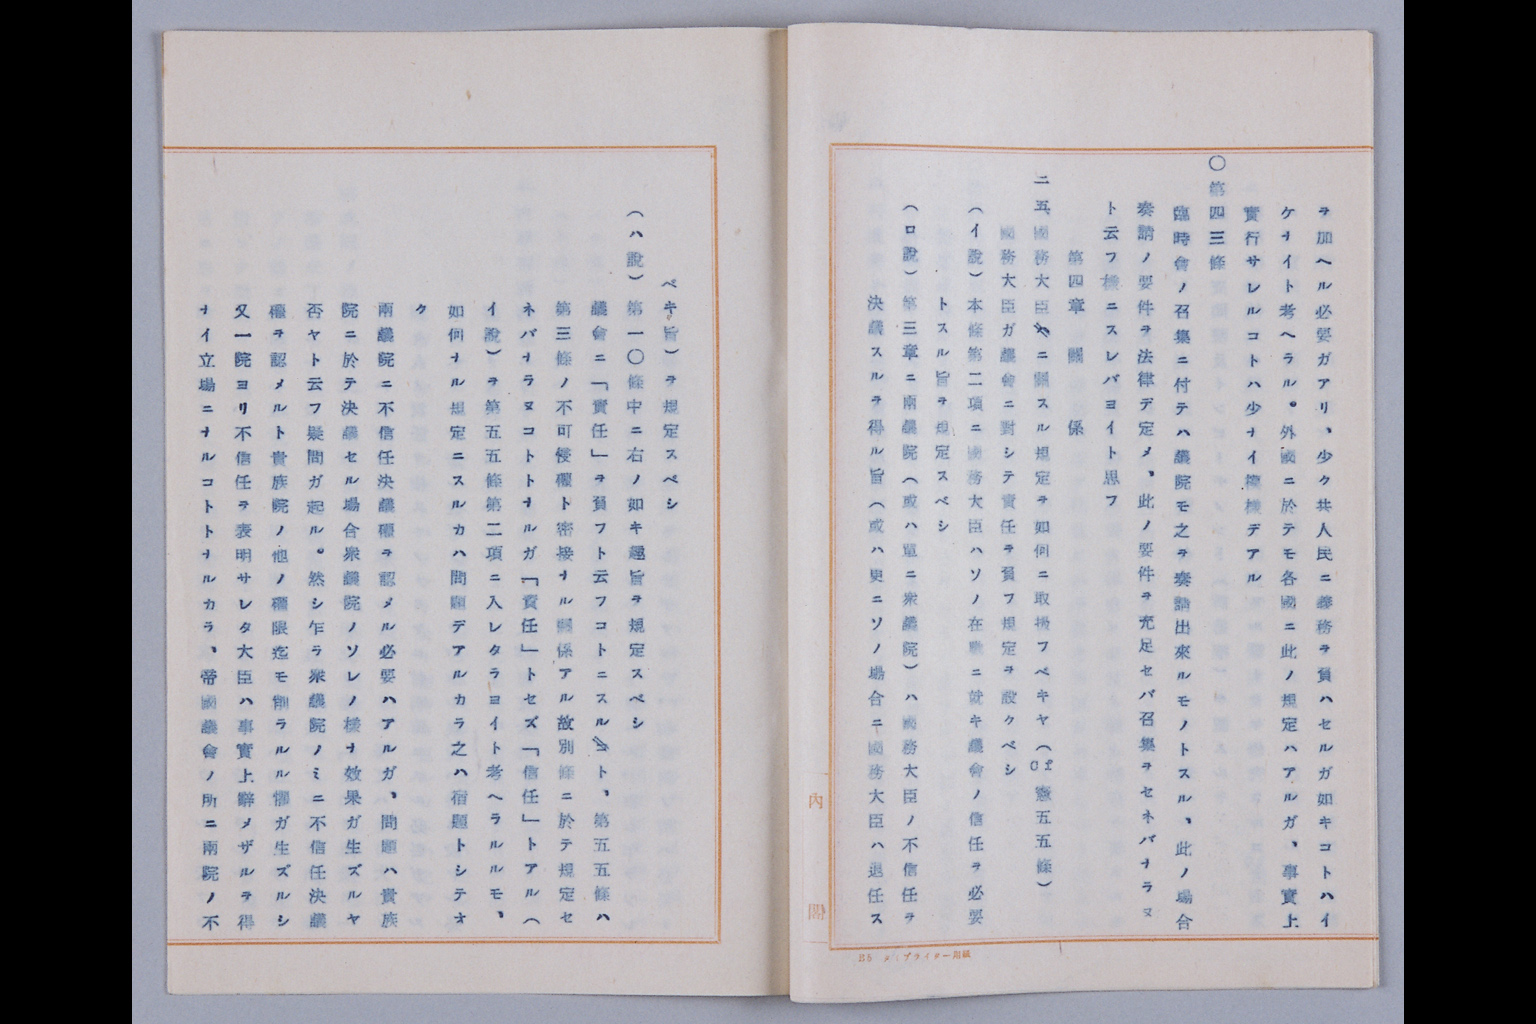 ヲ加ヘル必要ガアリ、少ク共人民ニ義務ヲ負ハセルガ如キコトハイ
ケナイト考ヘラル。外國ニ於テモ各國ニ此ノ規定ハアルガ、事實上
實行サレルコトハ少ナイ模様デアル
〇第四三條
臨時會ノ召集ニ付テハ議院モ之ヲ奏請出來ルモノトスル、此ノ場合
奏請ノ要件ヲ法律デ定メ、此ノ要件ヲ充足セバ召集ヲセネバナラヌ
ト云フ樣ニスレバヨイト思フ
第四章 關係
二五、國務大臣ニ關スル規定ヲ如何ニ取扱フベキヤ(cf憲五五條)
國務大臣ガ議會ニ對シテ責任ヲ負フ規定ヲ設クベシ
(イ說)本條第二項ニ國務大臣ハソノ在職ニ就キ議會ノ信任ヲ必要
トスル旨ヲ規定スベシ
(ロ說)第三章ニ兩議院(或ハ單ニ衆議院)ハ國務大臣ノ不信任ヲ
決議スルヲ得ル旨(或ハ更ニソノ場合ニ國務大臣ハ退任ス
ベキ旨)ヲ規定スベシ
(ハ說)第一〇條中ニ右ノ如キ趣旨ヲ規定スベシ
議會ニ「責任」ヲ負フト云フコトニスルト、第五五條ハ
第三條ノ不可侵權ト密接ナル關係アル故別條ニ於テ規定セ
ネバナラヌコトトナルガ「責任」トセズ「信任」トアル(
イ說)ヲ第五五條第二項ニ入レタラヨイト考ヘラルルモ、
如何ナル規定ニスルカハ問題デアルカラ之ハ宿題トシテオ
ク
兩議院ニ不信任決議權ヲ認メル必要ハアルガ、問題ハ貴族
院ニ於テ決議セル場合衆議院ノソレノ樣ナ效果ガ生ズルヤ
否ヤト云フ疑問ガ起ル。然シ乍ラ衆議院ノミニ不信任決議
權ヲ認メルト貴族院ノ他ノ權限迄モ削ラルル懼ガ生ズルシ
又一院ヨリ不信任ヲ表明サレタ大臣ハ事實上辭メザルヲ得
ナイ立場ニナルコトトナルカラ、帝國議會ノ所ニ兩院ノ不
內閣
B5 タイプライター用紙